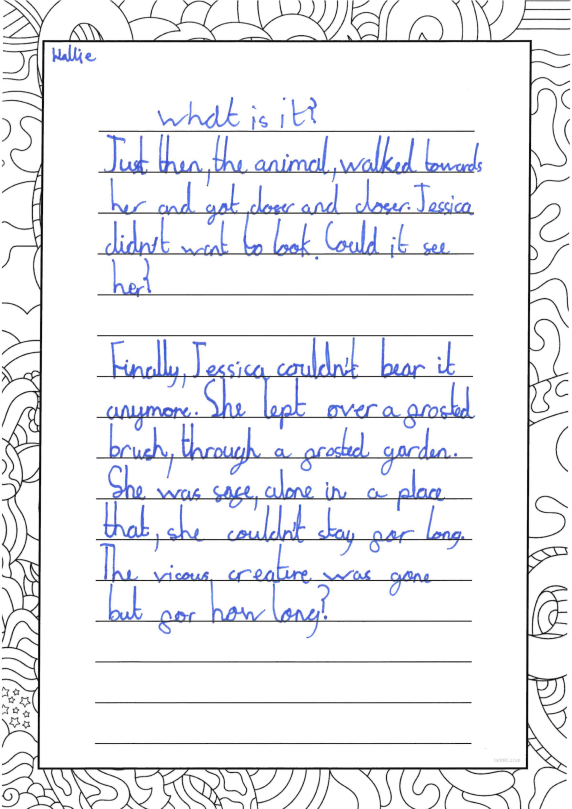 Hallie
What is it?
Just then, the animal, walked towards
her and got closer and closer. Jessica
didn't want to look. Could it see
her?
Finally, Jessica couldn't bear it
anymore. She lept over a frosted
brush, through a frosted garden.
She was safe, alone in a place
that, she couldn't stay for long.
The vicous creature was gone
but for how long?